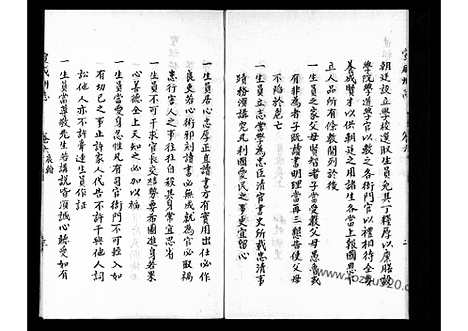 朝廷建立學校選取生員免其丁糧厚以廩膳設
學院學道學官以教之各衙門官以禮相待全要
養成賢才以供朝廷之用諸生各當上報國恩下
立人品所有條教開列於後
一生員之家父母賢智者子當受教父母愚魯或
有非為者子既讀書明理當再三懇告使父母
不陷於危亡
一生員立志當學為忠臣清官書史所載忠清事
蹟務須講究凡利國愛民之事更宜留心
一生員居心忠厚正直讀書方有實用出仕必作
良吏若心術邪刻讀書必無成就為官必取禍
患行害人之事往往自殺其身常宜思省
一生員不可干求官長交結勢要希圖進身若果
心善德全上天知之必加以福
一生員當愛身忍性凡有司官衙門不可輕入如
有切己之事止許家人代告不許干與他人詞
訟他人亦不許牽連生員作証
一生員當尊敬先生若講說皆須誠心聽受如有